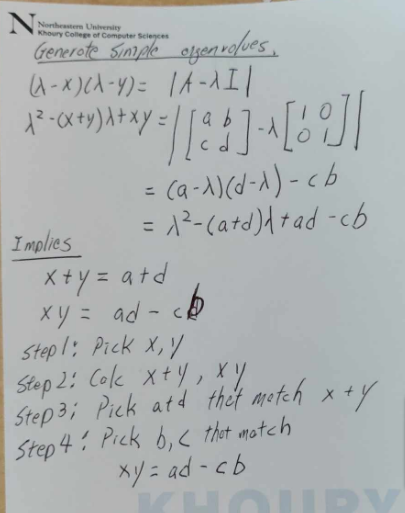 N Northeastern University
Khoury College of Computer Sciences
Generate simple eigenvalues.
(λ-x)(λ-y) = |A-λI|
λ²-(x+y)λ+xy = |[a b c d] -λ [1 0 0 1]|
= (a-λ)(d-λ) - cb
= λ²-(a+d)λ+ad -cb
Implies
x+y = a+d
xy = ad - cb
Step 1: Pick x, y
Step 2: Calc x+y, xy
Step 3: Pick a+d that match x+y
Step 4: Pick b, c that match
xy = ad - cb
KHOURY